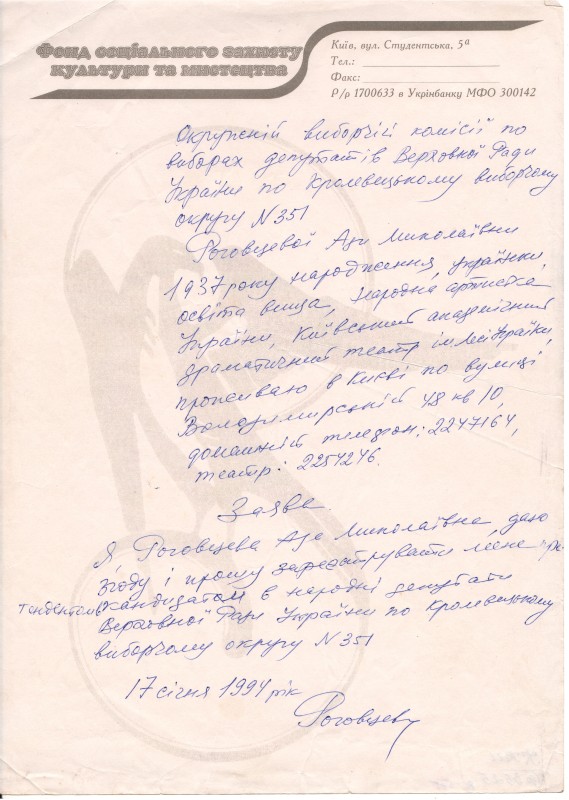 Фонд соціального захисту
культури та мистецтва
Київ, вул. Студентська, 5а
Тел.:
Факс:
Р/р 1700633 в Укрінбанку МФО 300142
Окружній виборчій комісії по
виборах депутатів Верховної Ради
України по Кролевецькому виборчому
округу N 351
Роговцевої Ади Миколаївни
1937 року народження, українки,
освіта вища, народна артистка
України, Київський академічний
драматичний театр ім Лесі Українки,
проживаю в Києві по вулиці
Володимирській 48 кв 10,
домашній телефон: 2247164,
театр: 2254246.
Заява
Я Роговцева Ада Миколаївна, даю
згоду і прошу зареєструвати мене пре-
тендентом кандидатом в народні депутати
Верховної Ради України по Кролевецькому
виборчому округу N 351
17 січня 1994 рік
Роговцева